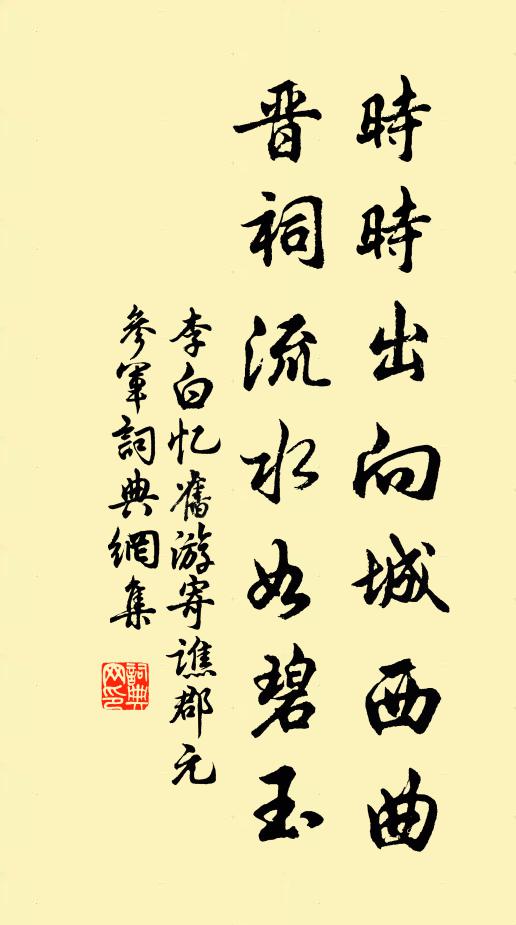 時時出向城西曲
晋祠流水如碧玉
李白忆舊游寄譙郡元
參軍詞典網集
詞典
网印